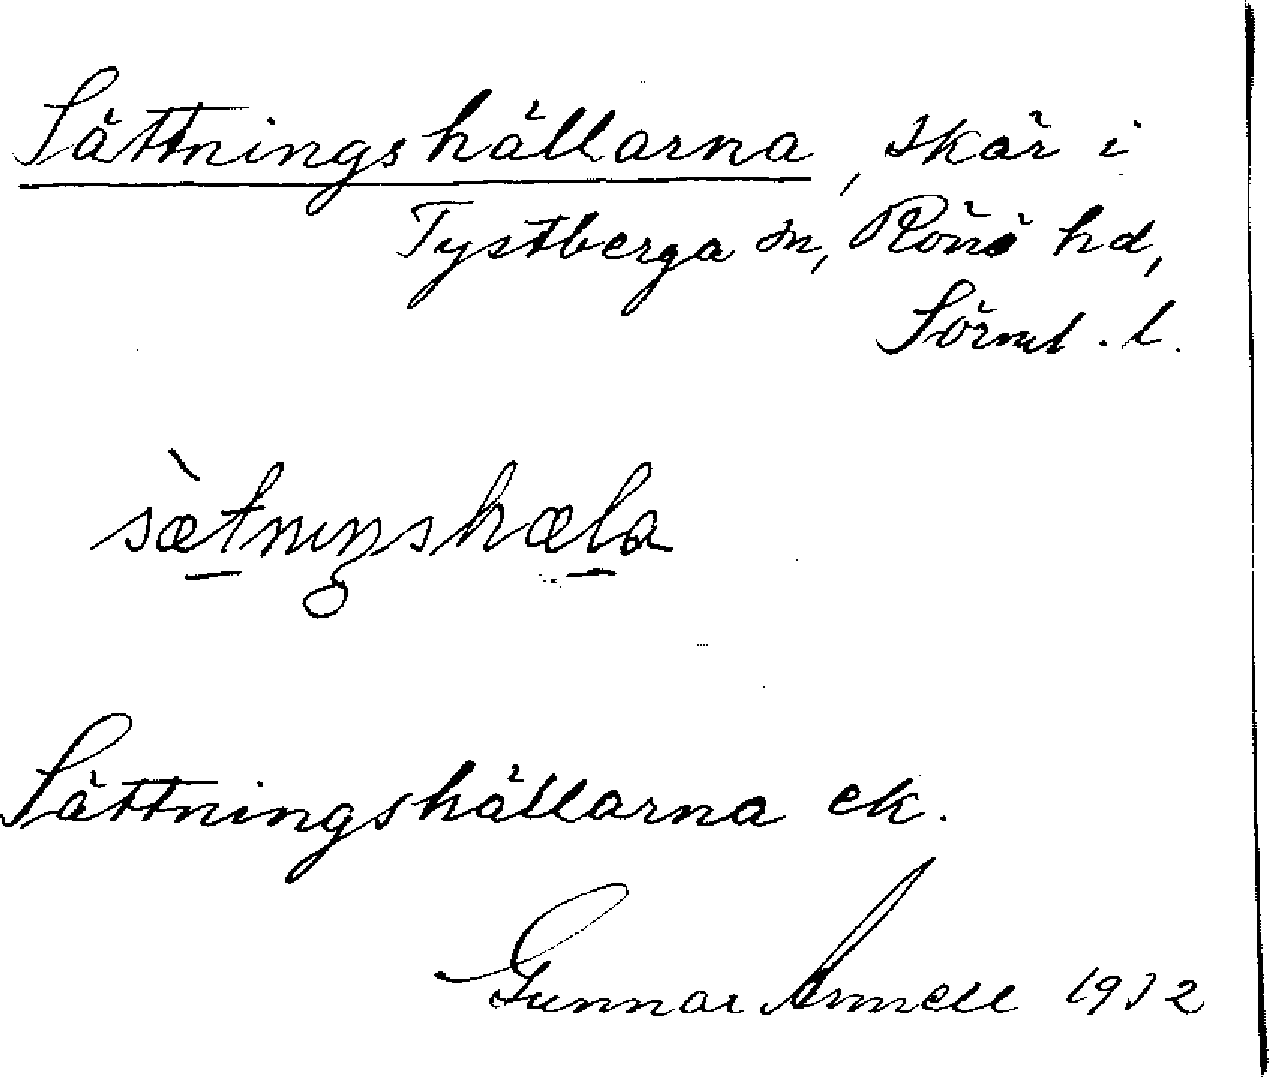 Sättningshällarna, skär i
Tystberga sn, Rönö hd,
Sörml. l.
sæ̀tnıŋshæla
Sättningshällarna ek.
Gunnar 1932